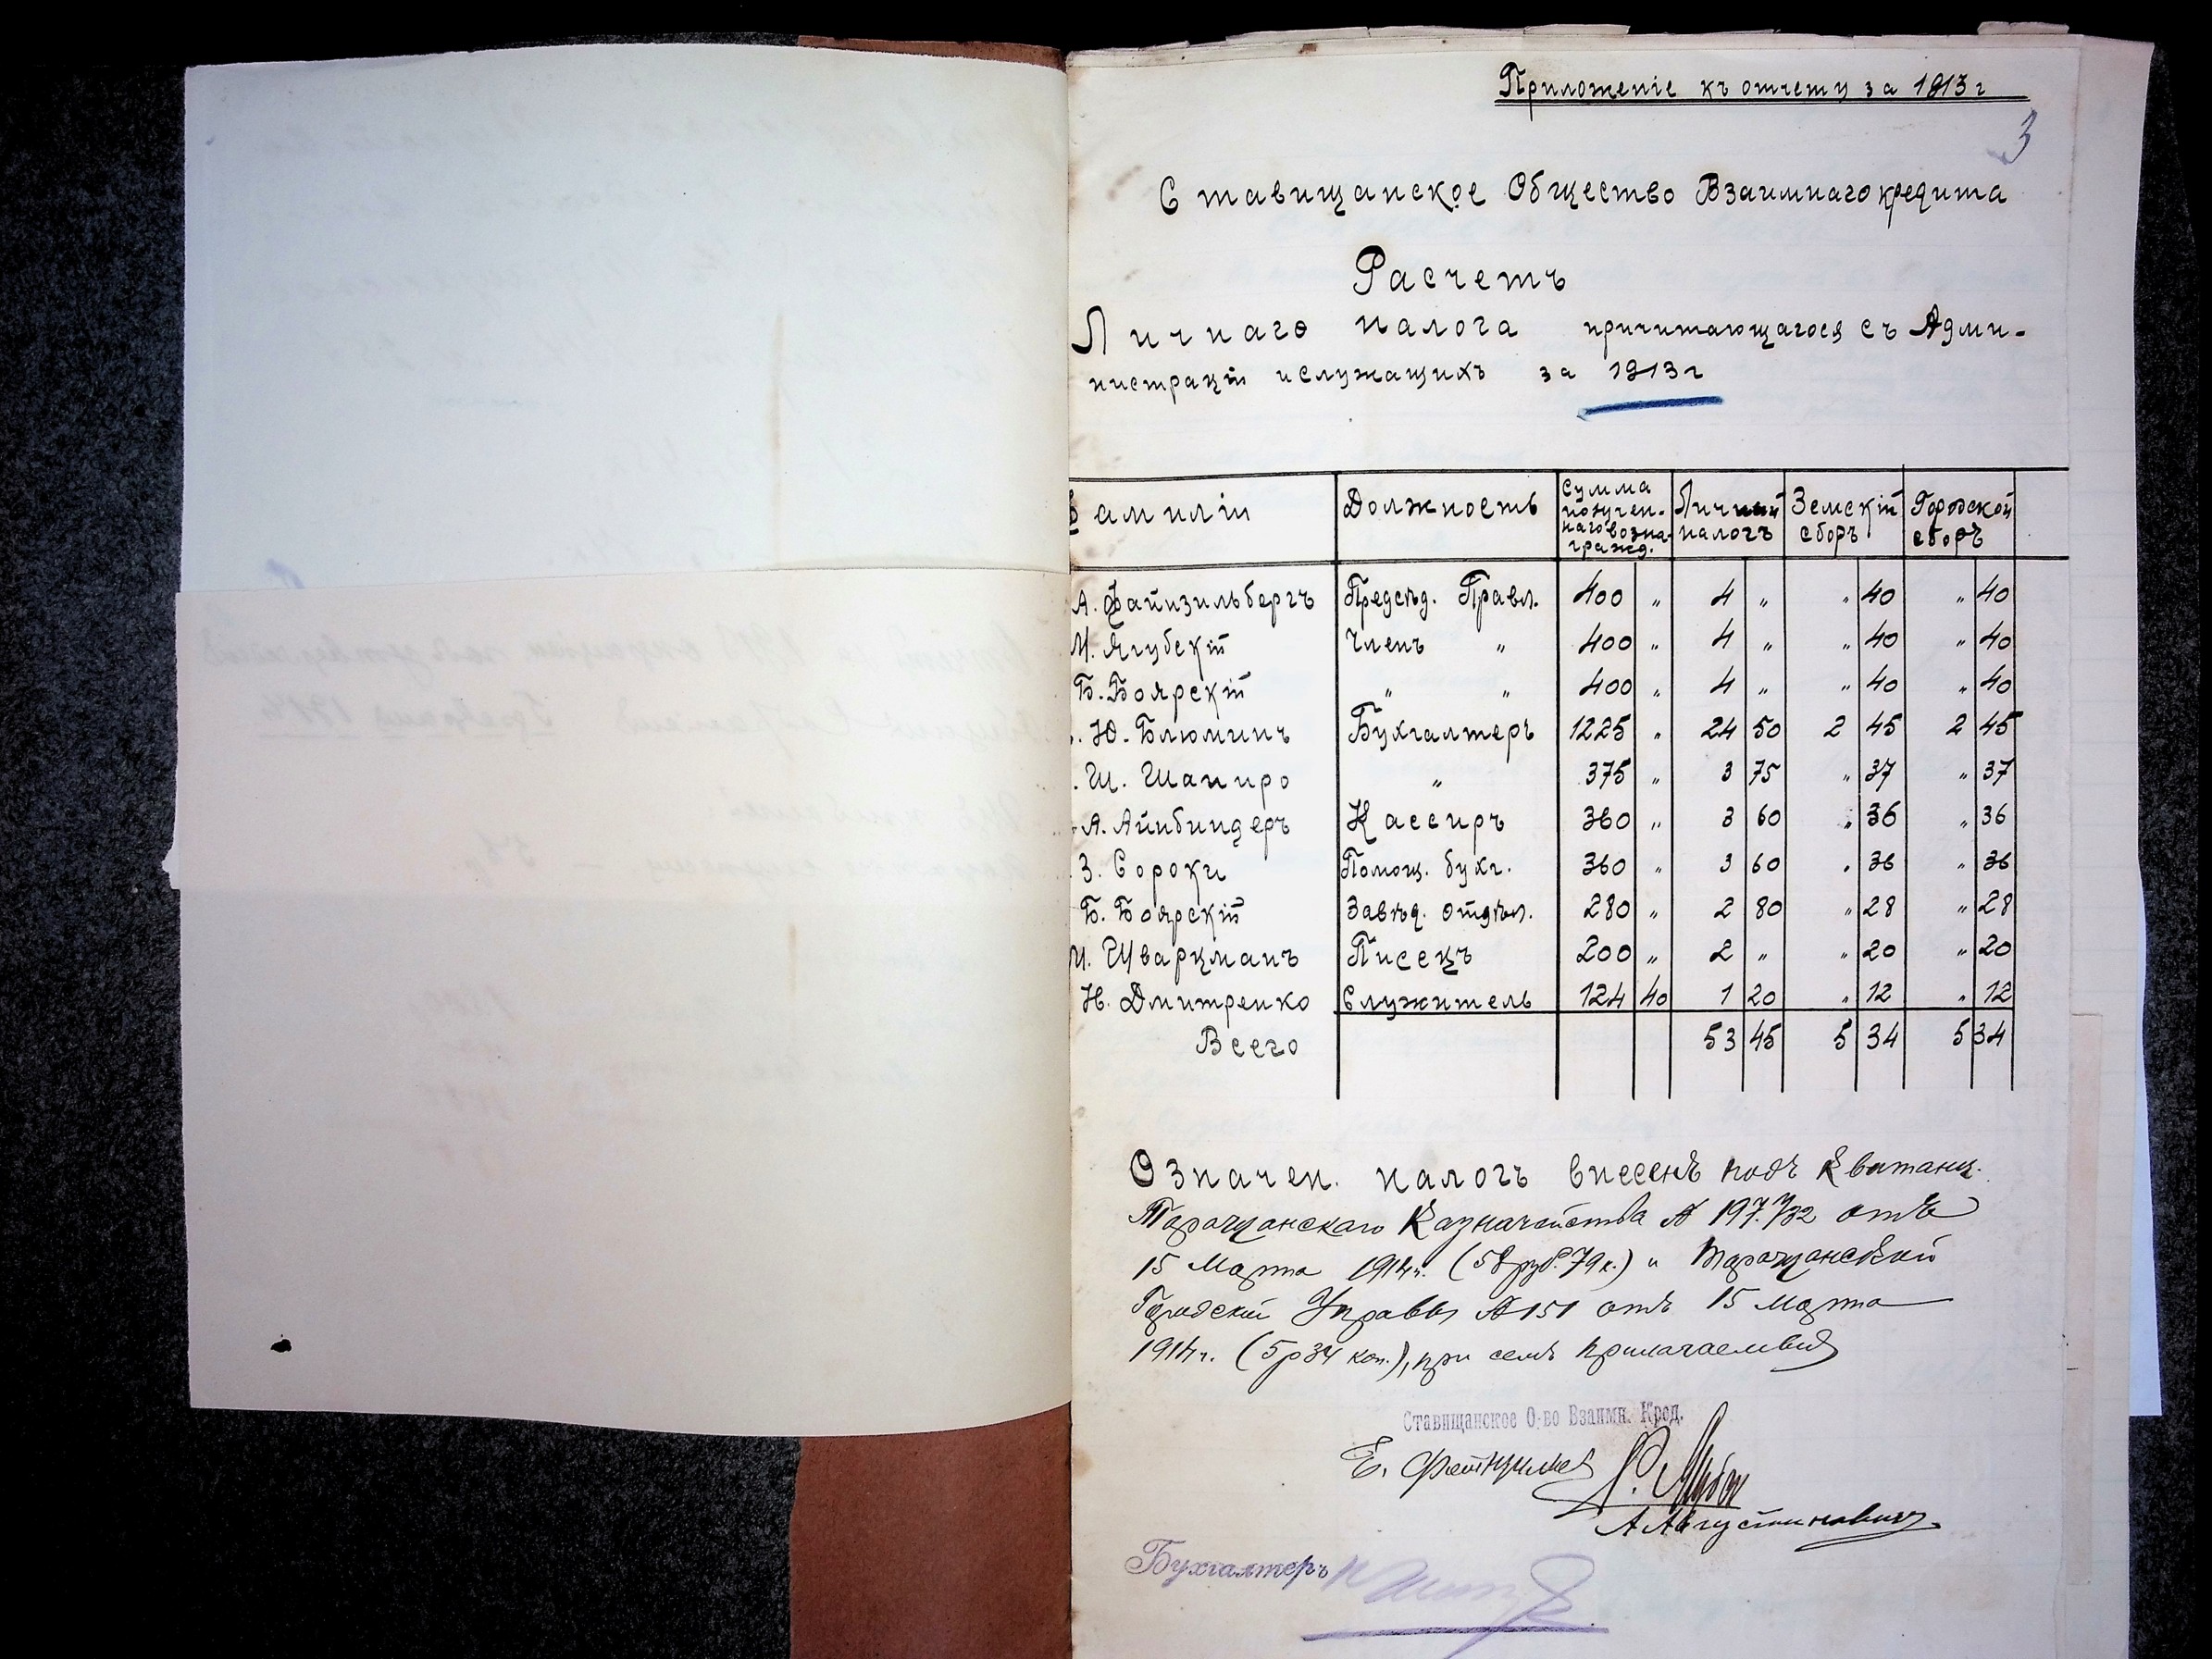 Приложеніе къ отчету за 1913 г
3
Ставищанское Общество Взаимнаго кредита
Расчетъ
Личнаго налога причитающагося съ Адми-
нистраціи и служащихъ за 1913 г
Фамиліи Должность Сумма получен- наго возна- гражд. Личный налогъ Земскій сборъ Городской сборъ
А. Файнзильбергъ Предсѣд. Правл. 400 " 4 " " 40 " 40
М. Ягубскій Членъ " 400 " 4 " " 40 " 40
Б. Боярскій " " 400 " 4 " " 40 " 40
Ю. Блюминъ Бухгалтеръ 1225 " 24 50 2 45 2 45
Ш. Шапиро " 375 " 3 75 " 37 " 37
А. Айнбиндеръ Кассиръ 360 " 3 60 " 36 " 36
З. Сороки Помощ. бухг. 360 " 3 60 " 36 " 36
Б. Боярскій Завѣд. отдѣл. 280 " 2 80 " 28 " 28
Шваркманъ Писецъ 200 " 2 " " 20 " 20
Н. Дмитренко Служитель 124 40 1 20 " 12 " 12
Всего 53 45 5 34 5 34
Означен. налогъ внесенъ подъ квитанц.
Таращанскаго Казначейства № отъ
15 Марта 1914 г. (58 руб. 79 к.) и Таращанской
Городской Управы № 151 отъ 15 Марта
1914 г. (5 р 34 коп.), при семъ прилагаемыя
Ставищанское О-во Взаимн. Кред.
Е.
А Августиновичъ
Бухгалтеръ